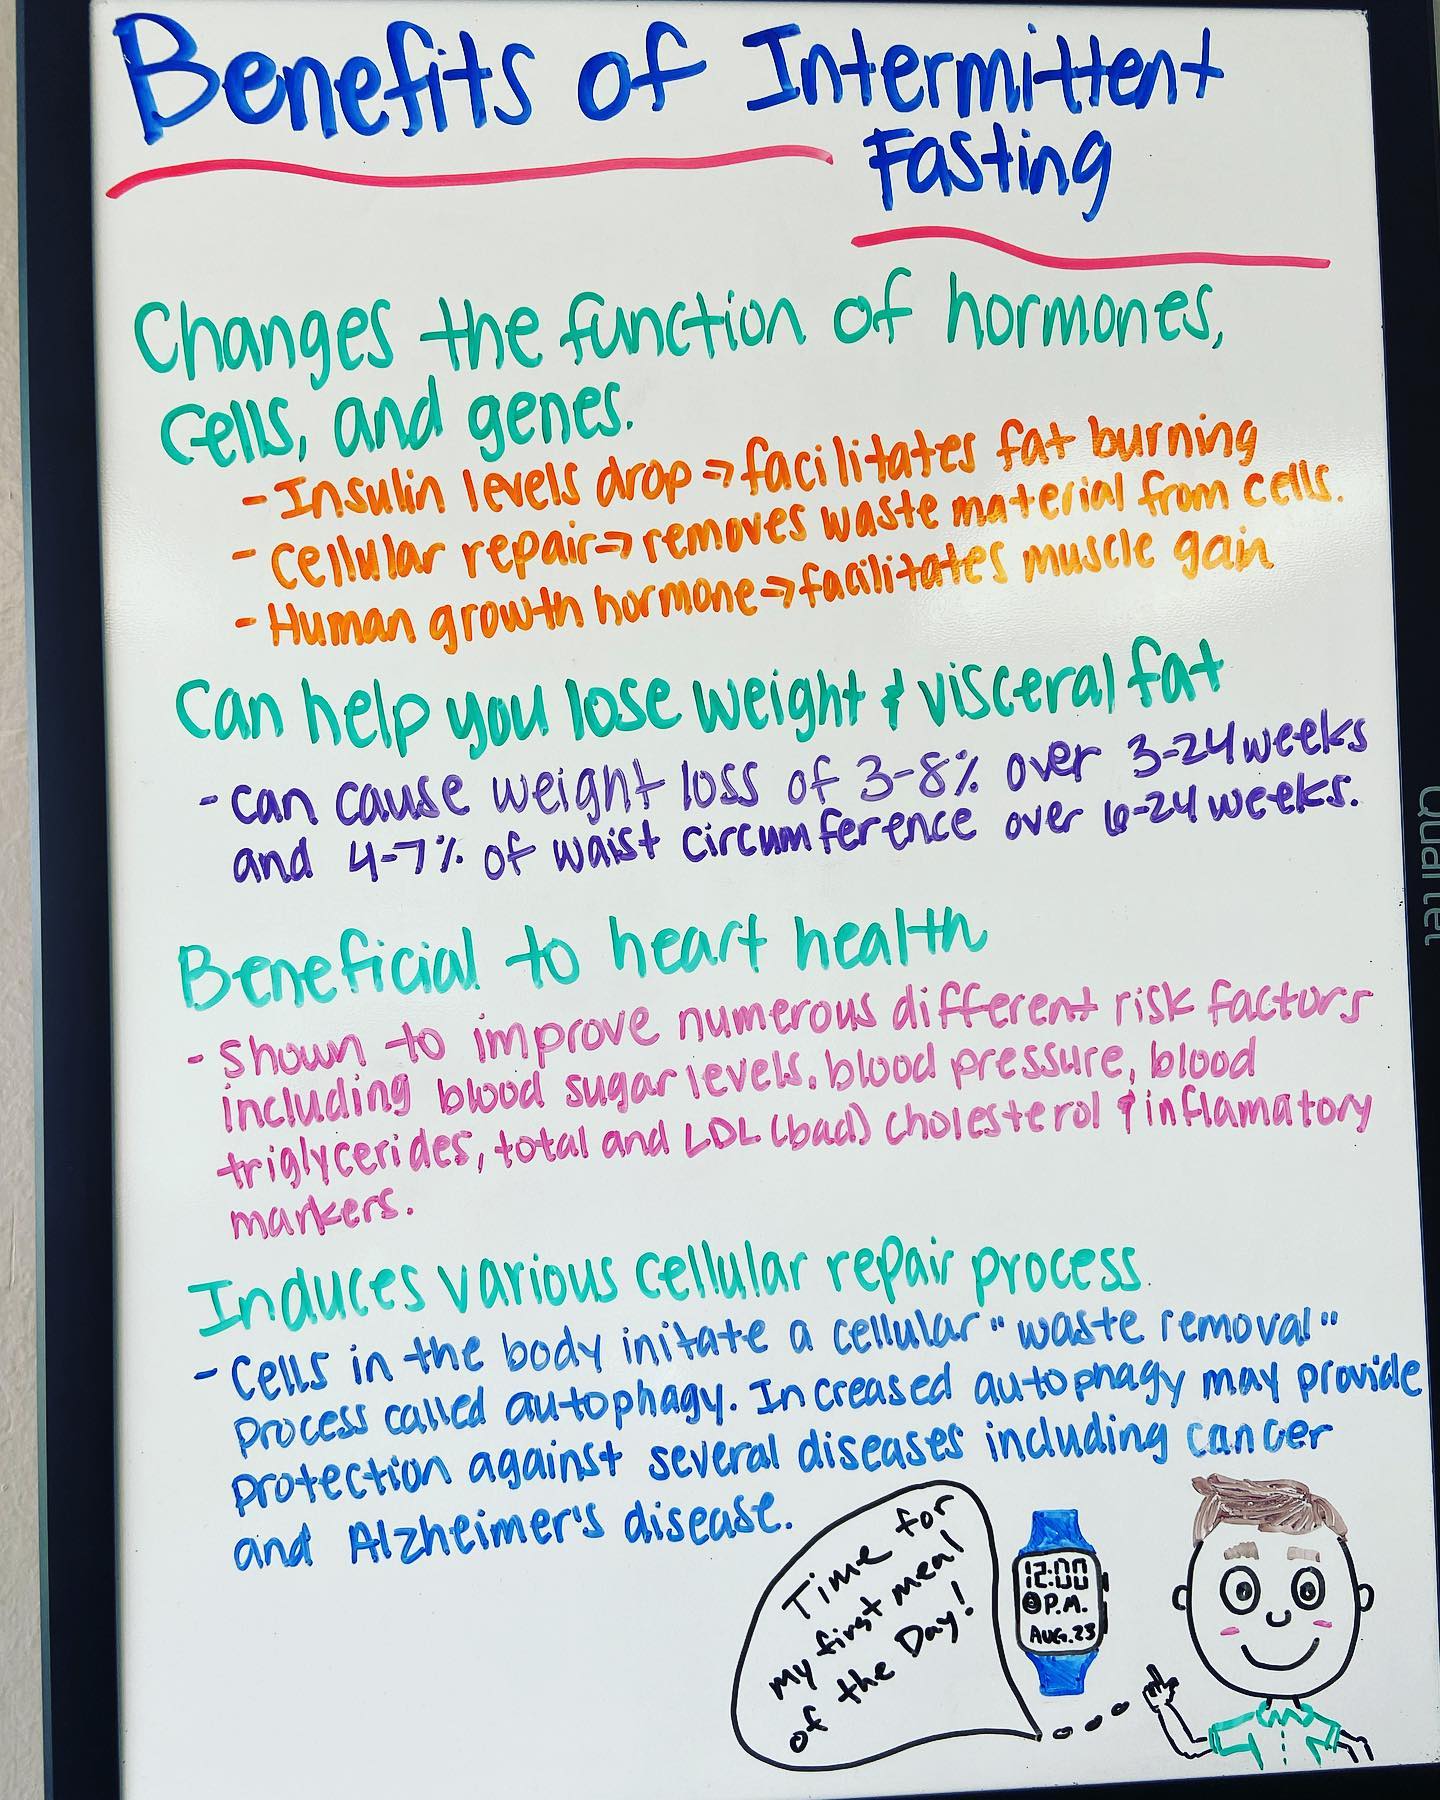 Benefits of Intermittent
Fasting
Changes the function of hormones,
Cells, and genes.
- Insulin levels drop ⇒ facilitates fat burning
- Cellular repair ⇒ removes waste material from cells.
- Human growth hormone ⇒ facilitates muscle gain
Can help you lose weight & visceral fat
- can cause weight loss of 3-8% over 3-24 weeks
and 4-7% of waist circumference over 6-24 weeks.
Beneficial to heart health
- Shown to improve numerous different risk factors
including blood sugar levels, blood pressure, blood
triglycerides, total and LDL (bad) cholesterol & inflamatory
markers.
Induces various cellular repair process.
- Cells in the body initate a cellular "waste removal"
process called autophagy. Increased autophagy may provide
protection against several diseases including cancer
and Alzheimer's disease.
Time for
my first meal
of the Day!
12:00
P.M.
AUG.23
Quartet